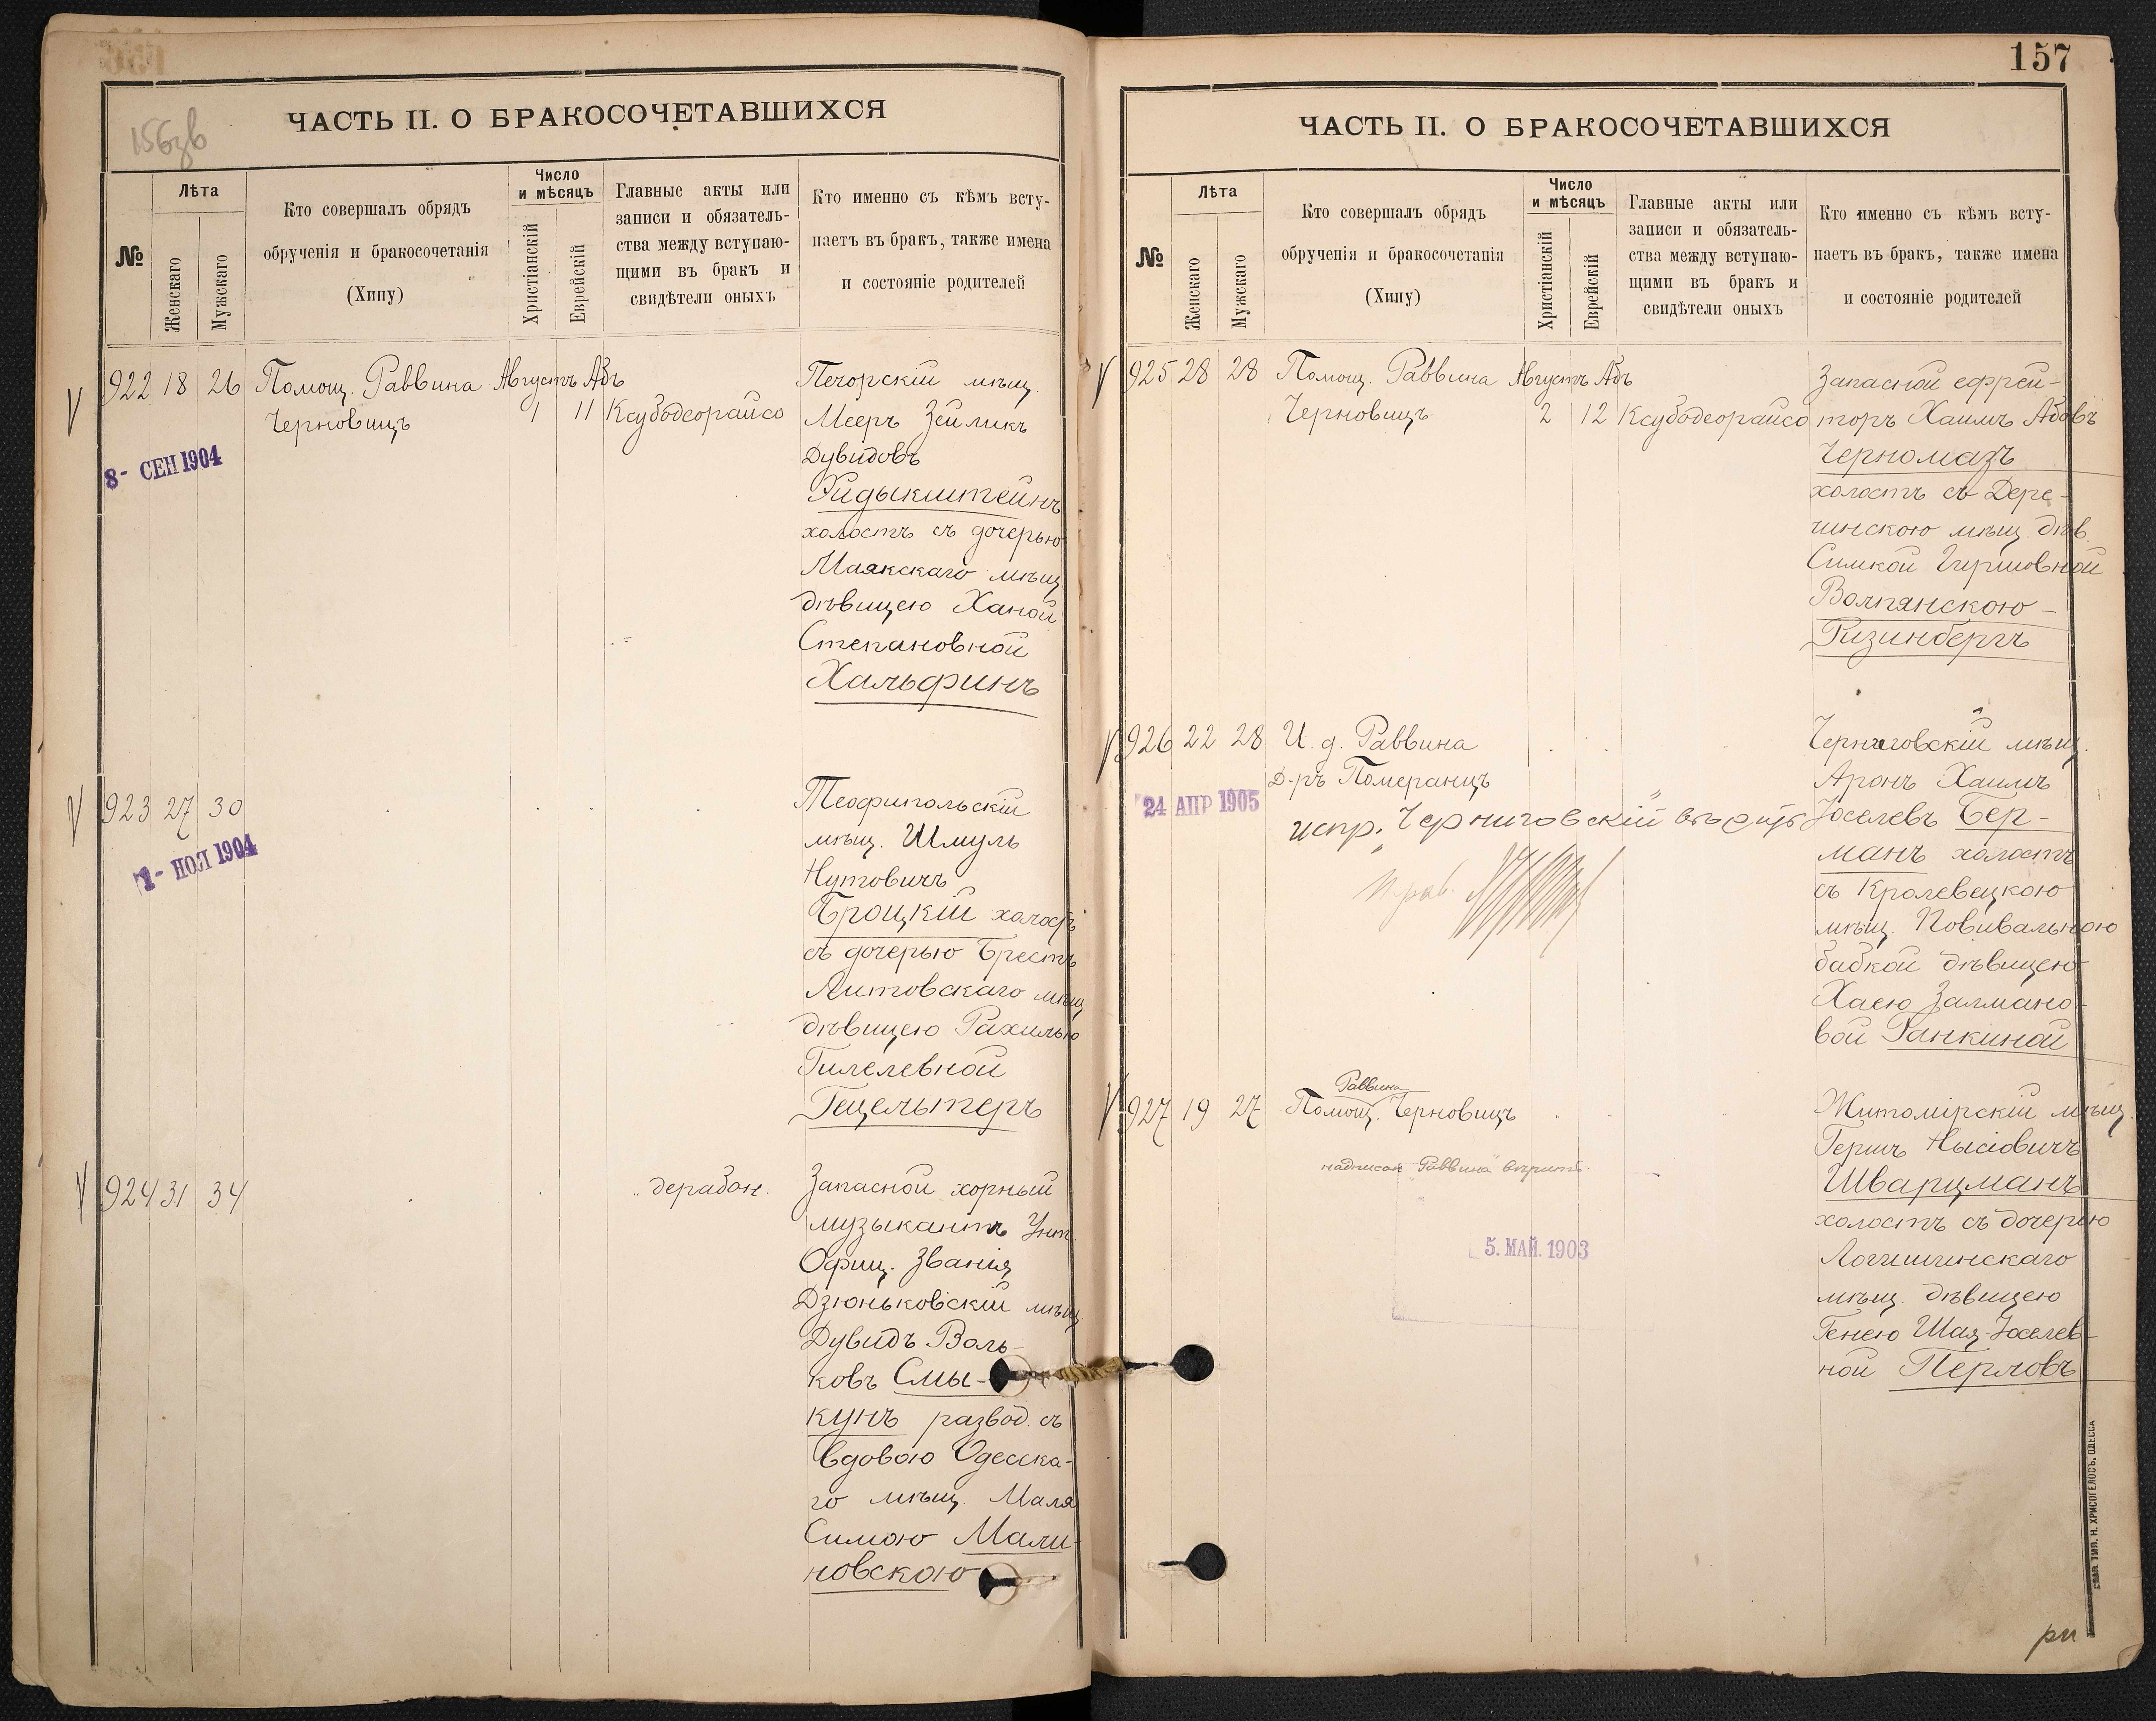 156об
ЧАСТЬ II. О БРАКОСОЧЕТАВШИХСЯ
№
Лѣта
Женскаго
Мужскаго
Кто совершалъ обрядъ
обрученія и бракосочетанія
(Хипу)
Число
и мѣсяцъ
Христіанскій
Еврейскій
Главные акты или
записи и обязатель-
ства между вступаю-
щими въ бракъ и
свидѣтели оныхъ
Кто именно съ кѣмъ всту-
паетъ въ бракъ, также имена
и состояніе родителей
922 18 26 Помощ. Раввина Августъ Абъ
Черновицъ 1 11 Ксубодеорайсо
8- СЕН 1904
Печорскій мѣщ.
Мееръ Зейликъ
Дувидовъ
Фидыкштейнъ
холостъ съ дочерью
Маякскаго мѣщ
дѣвицею Ханой
Степановной
Хальфинъ
923 27 30
1- НОЯ 1904
Теофипольскій
мѣщ. Шмуль
Нутовичъ
Троцкій холостъ
съ дочерью Брестъ
Литовскаго мѣщ
дѣвицею Рахилью
Гилелевной
Гецельтеръ
924 31 34
дерабон.
Запасной хорный
музыкантъ Унт.
Офиц. Званія
Дзюньковскій мѣщ
Дувидъ Воль-
ковъ Смы-
кунъ развод. съ
вдовою Одесска-
го мѣщ. Маля
Симою Мали-
новскою
157
ЧАСТЬ II. О БРАКОСОЧЕТАВШИХСЯ
№
Лѣта
Женскаго
Мужскаго
Кто совершалъ обрядъ
обрученія и бракосочетанія
(Хипу)
Число
и мѣсяцъ
Христіанскій
Еврейскій
Главные акты или
записи и обязатель-
ства между вступаю-
щими въ бракъ и
свидѣтели оныхъ
Кто именно съ кѣмъ всту-
паетъ въ бракъ, также имена
и состояніе родителей
925 28 28 Помощ. Раввина Августъ Абъ
Черновицъ 2 12 Ксубодеорайсо
Запасной ефрей-
торъ Хаимъ Абовъ
Черномазъ
холостъ съ Дере-
чинскою мѣщ. дѣв.
Симкой Гершовной
Волпянскою-
Гизинбергъ
926 22 28 И. д. Раввина
Д-ръ Померанцъ
24 АПР 1905
испр. "Черниговскій"
Черниговскій мѣщ.
Аронъ Хаимъ
Іоселевъ Бер-
манъ холостъ
съ Кролевецкою
мѣщ. Повивальною
бабкой дѣвицею
Хаею Залмано-
вой Ранкиной
927 19 27 Помощ. Раввина Черновицъ
надписан. "Раввина" вѣрить.
5. МАЙ. 1903
Житомірскій мѣщ.
Гершъ Нысіовичъ
Шварцманъ
холостъ съ дочерью
Логишинскаго
мѣщ. дѣвицею
Генею Шая-Іоселев-
ной Перловъ
ТИП. Н. ХРИСОГЕЛОСЪ, ОДЕССА